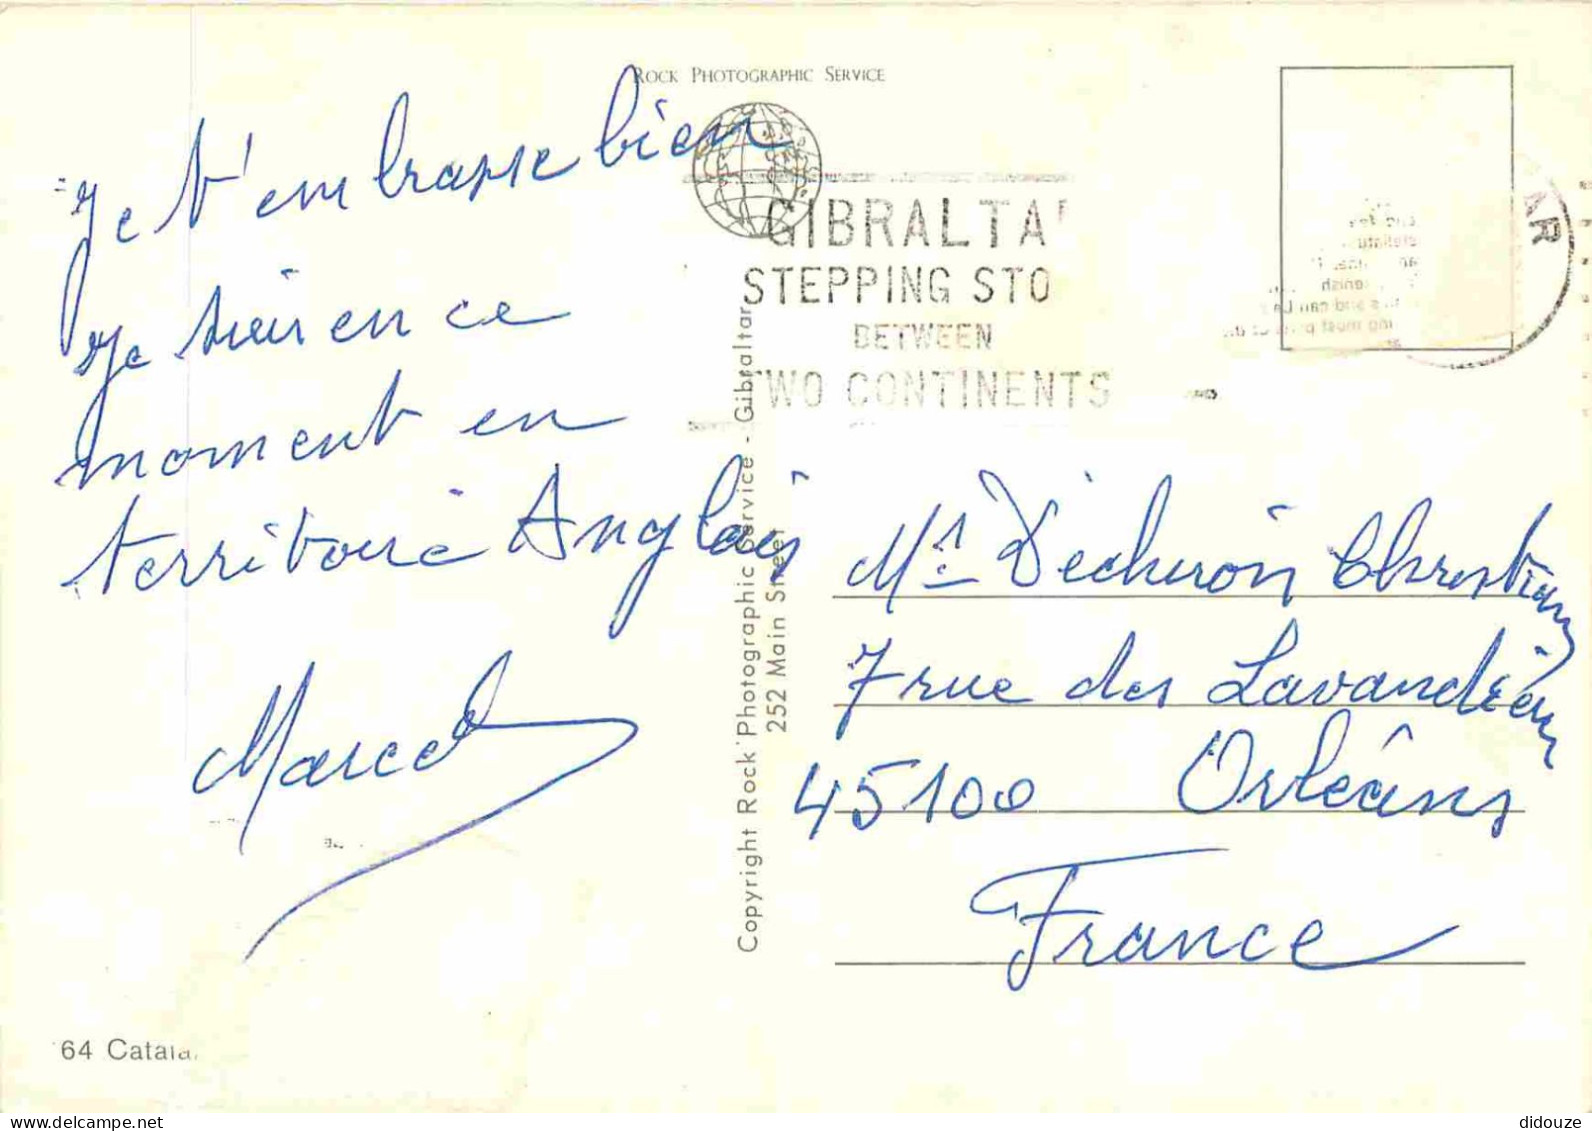 ROCK PHOTOGRAPHIC SERVICE
Je t'embrasse bien
je suis en ce
moment en
territoire Anglais
Marcel
64 Catala
GIBRALTA
STEPPING STO
BETWEEN
TWO CONTINENTS
AR
Copyright Rock Photographic Service - Gibraltar
252 Main Street
Mr. Décheron Christian
7 rue des Lavandières
45100 Orléans
France
delcampe.net
didouze